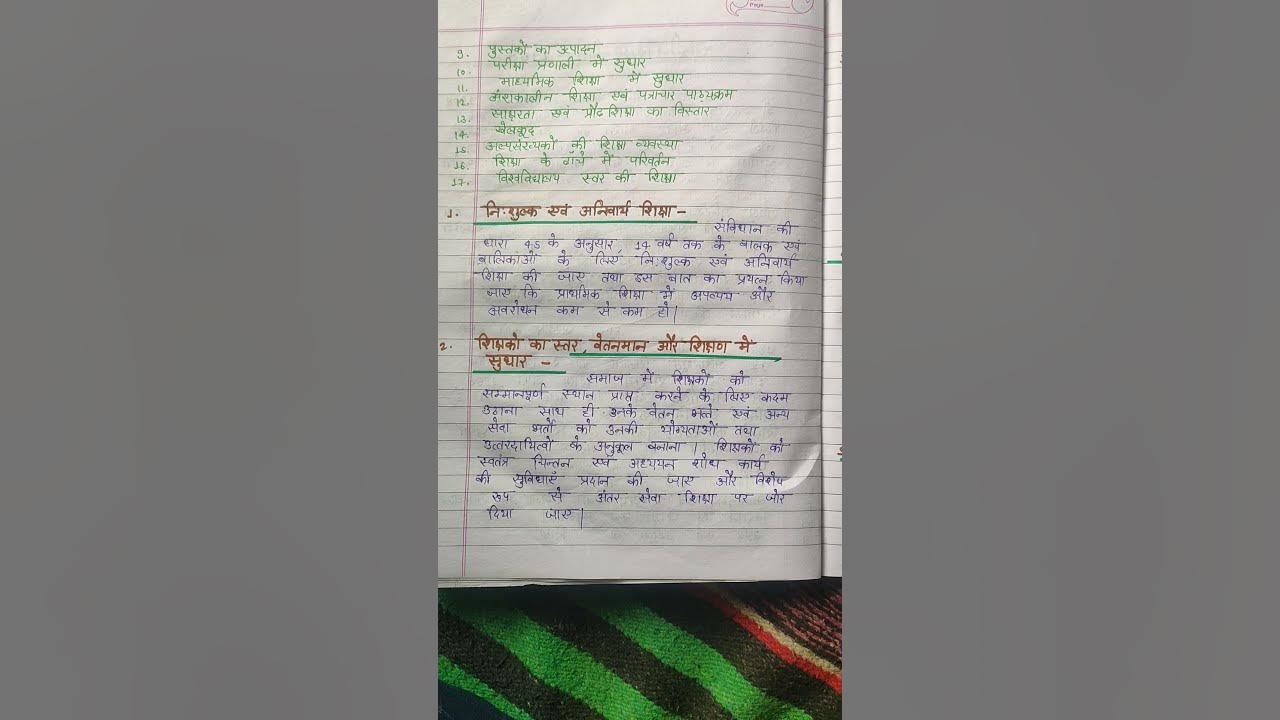 9. पुस्तकों का उत्पादन
10. परीक्षा प्रणाली में सुधार
11. माध्यमिक शिक्षा में सुधार
12. अंशकालीन शिक्षा एवं पत्राचार पाठ्यक्रम
13. साक्षरता एवं प्रौढ शिक्षा का विस्तार
14. खेलकूद
15. अल्पसंख्यकों की शिक्षा व्यवस्था
16. शिक्षा के ढाँचे में परिवर्तन
17. विश्वविद्यालय स्तर की शिक्षा
1. नि:शुल्क एवं अनिवार्य शिक्षा -
संविधान की
धारा 45 के अनुसार, 14 वर्ष तक के बालक एवं
बालिकाओं के लिए नि:शुल्क एवं अनिवार्य
शिक्षा की जाए तथा इस बात का प्रयत्न किया
जाए कि प्राथमिक शिक्षा में अपव्यय और
अवरोधन कम से कम हो|
2. शिक्षको का स्तर, वेतनमान और शिक्षण में
सुधार -
समाज में शिक्षकों को
सम्मानपूर्ण स्थान प्राप्त करने के लिए कदम
उठाना साथ ही उनके वेतन भत्ते एवं अन्य
सेवा भर्तो को उनकी योग्यताओं तथा
उत्तरदायित्वों के अनुकूल बनाना | शिक्षकों को
स्वतंत्र चिन्तन एवं अध्ययन शोध कार्य
की सुविधाएँ प्रदान की जाए और विशेष
रूप से अंतर सेवा शिक्षा पर जोर
दिया जाए|